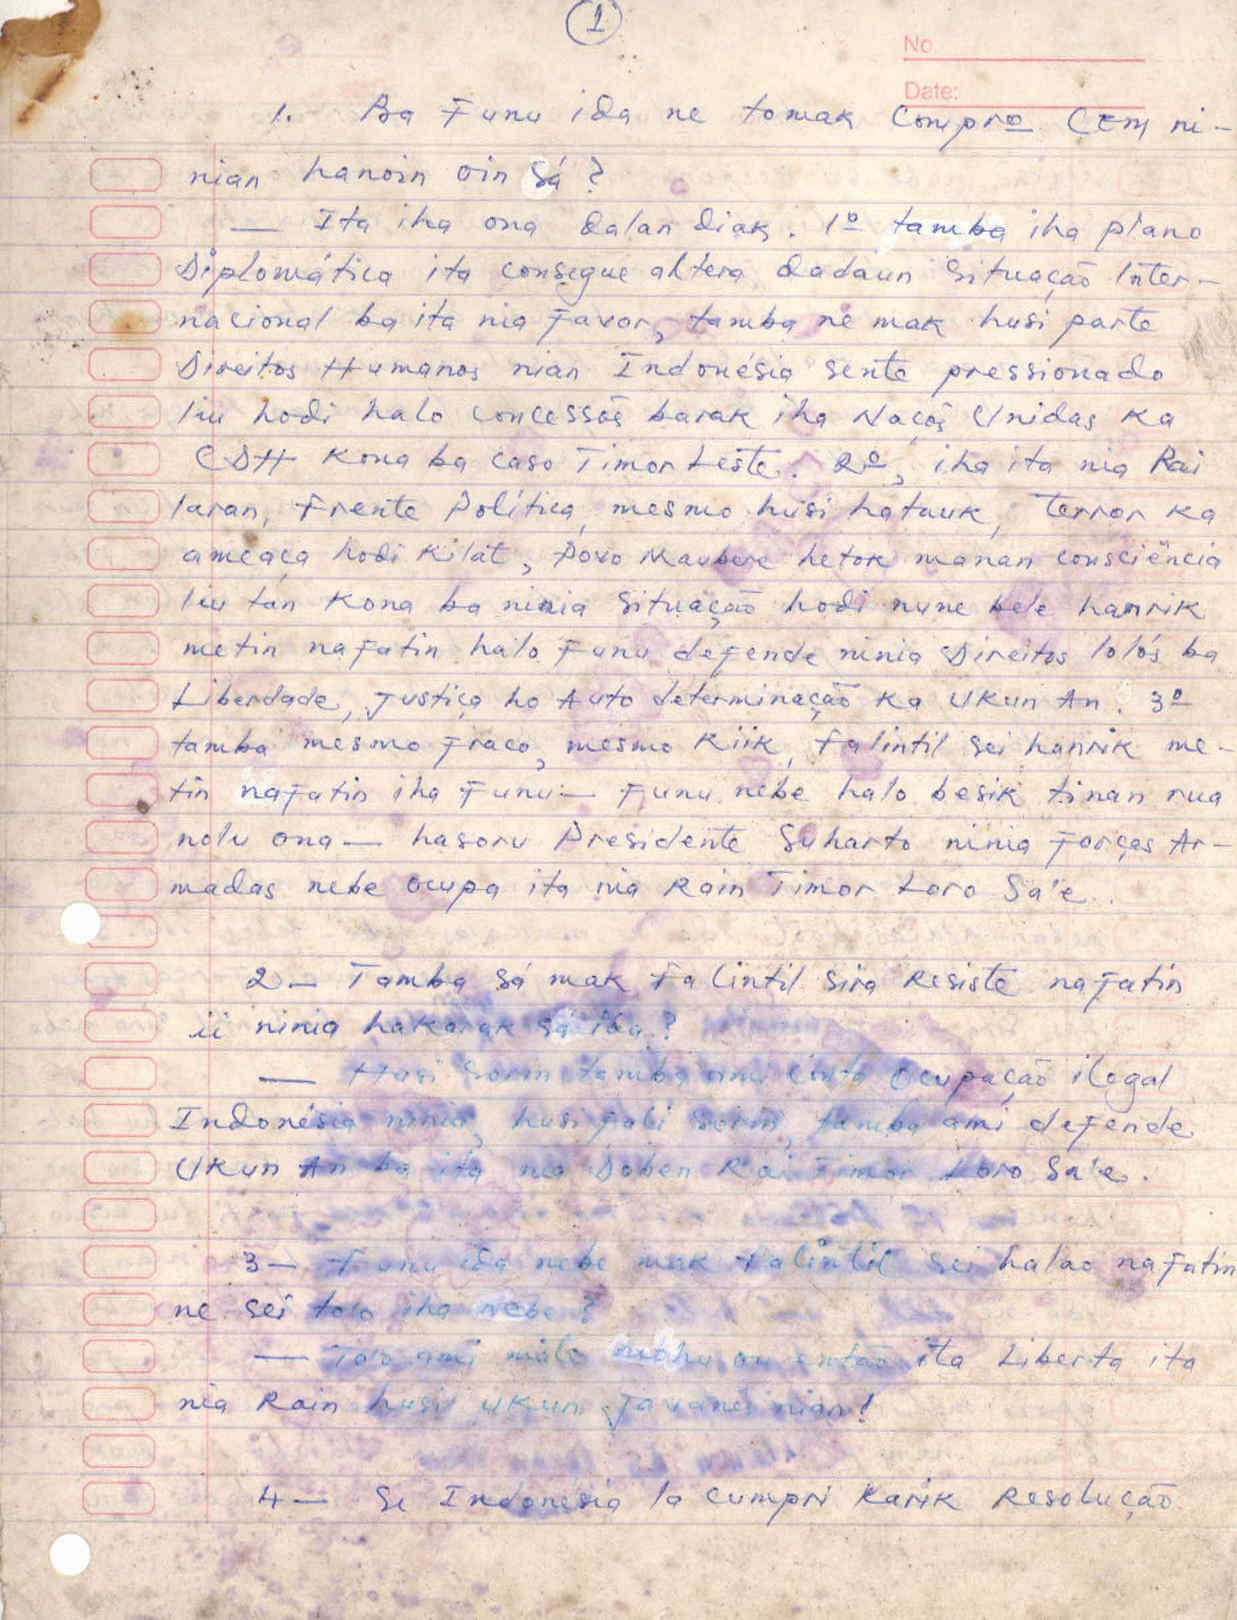 1
No.
Date:
1. Ba Funu ida ne tomak Compro CEM ni-
nian hanoin oin sá?
— Ita iha ona dalan diak. 1º tamba iha plano
Diplomática ita consegue altera dadaun Situação Inter-
nacional ba ita nia favor, tamba ne mak husi parte
Direitos Humanos nian Indonésia sente pressionado
liu hodi halo concessões barak iha Nações Unidas ka
CDH kona ba caso Timor Leste. 2º, iha ita nia Rai
laran, Frente Política, mesmo husi hatauk, Terror ka
ameaça hodi kilat, Povo Maubere hetok manan consciência
liu tán kona ba ninia Situação hodi nune bele hamrik
metin nafatin halo Funu defende ninia Direitos lolós ba
Liberdade, Justiça ho Auto determinação ka Ukun An. 3º
tamba mesmo fraco, mesmo kiik, Falintil sei hamrik me-
tin nafatin iha Funu — Funu nebe halo besik tinan rua
nolu ona — hasoru Presidente Suharto ninia Forças Ar-
madas nebe ocupa ita nia Rain Timor Loro Sa'e.
2 — Tamba sá mak Falintil sira Resiste nafatin
ii ninia hakarak sá ida?
— Husi Sorin tamba ami contra Ocupação ilegal
Indonésia ninia, husi fali sorin, tamba ami defende
Ukun An ba ita nia Doben Rai Timor Loro Sa'e.
3 — Funu ida nebe mak Falintil sei halao nafatin
ne sei to'o iha nebe?
— To'o ami mate mohu ou então ita Liberta ita
nia Rain husi ukun Javanes nian!
4 — Se Indonesia la cumpri karik Resolução